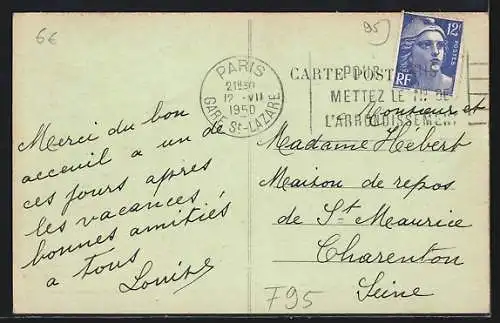 6€
95
12F
POSTES
RF
PARIS
21H30
12 - VII
1950
GARE St-LAZARE
CARTE POSTALE
POUR
METTEZ LE N° DE
L'ARRONDISSEMENT
Merci du bon
acceuil a un de
ces jours apres
les vacances
bonnes amitiés
a tous
Louise
Monsieur et
Madame Hébert
Maison de repos
de St Maurice
Charenton
Seine
F95